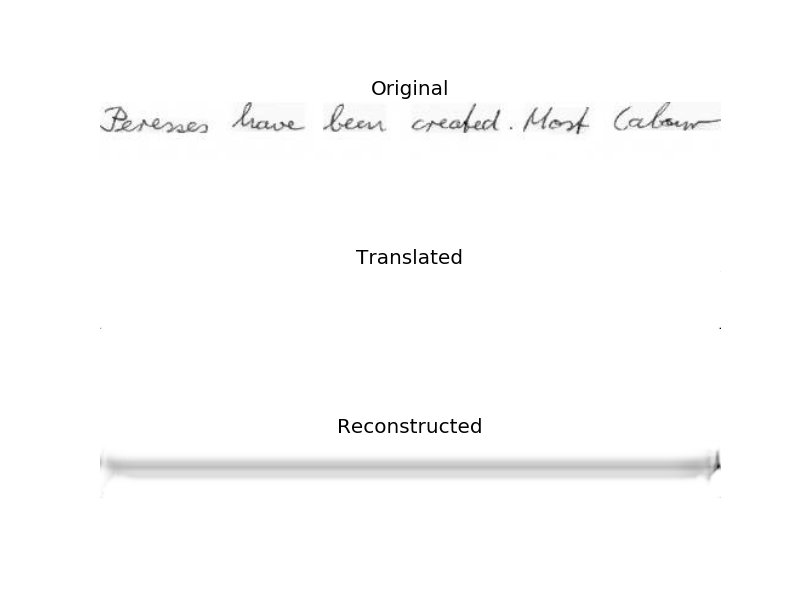 Original
Peresses have been created. Most Labour
Translated
Reconstructed